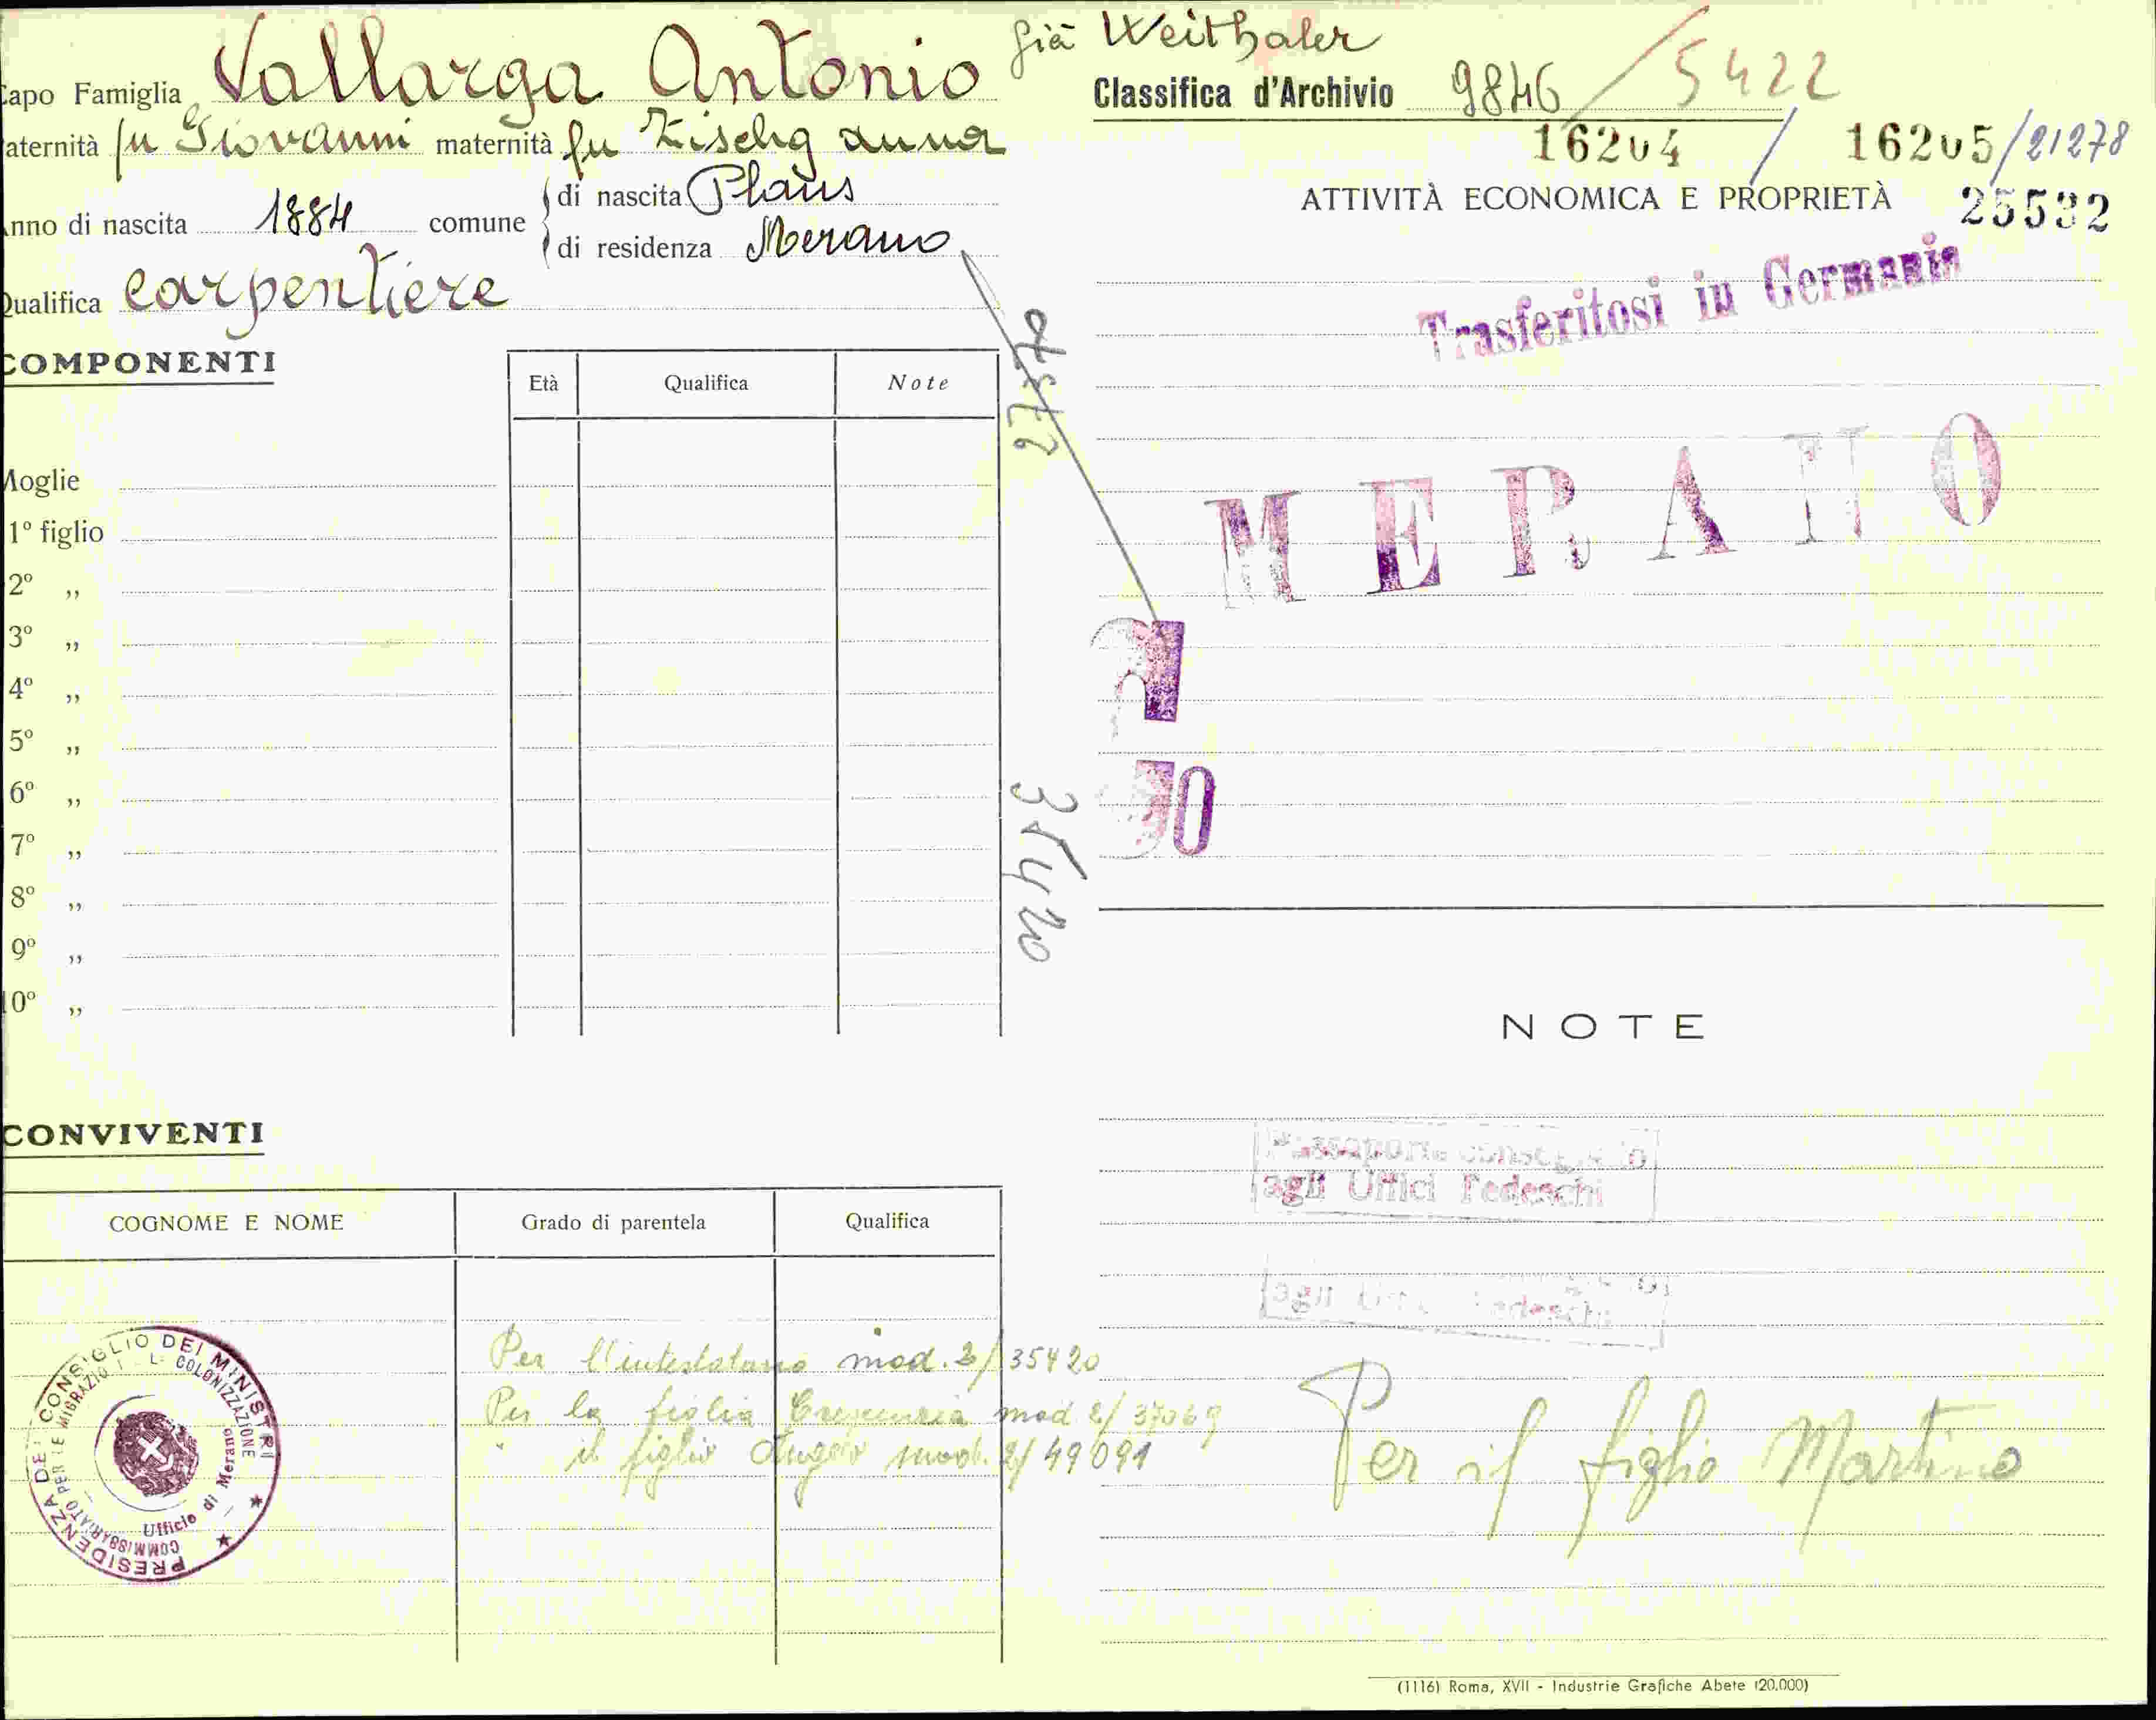 Capo Famiglia Vallarga Antonio già Weithaler
Paternità fu Giovanni maternità fu Zischg Anna
Anno di nascita 1884 comune di nascita Plaus
di residenza Merano
Qualifica carpentiere
COMPONENTI
Età Qualifica Note
Moglie
1º figlio
2º „
3º „
4º „
5º „
6º „
7º „
8º „
9º „
10º „
35420
CONVIVENTI
COGNOME E NOME Grado di parentela Qualifica
Per l'intestatario mod. 2/35420
Per la figlia Crescenzia mod 2/37069
" il figlio Angelo mod. 2/49091
PRESIDENZA DEL CONSIGLIO DEI MINISTRI
COMMISSARIATO PER LE MIGRAZIONI E LA COLONIZZAZIONE
Ufficio di Merano
Classifica d'Archivio 9846 / 5422
16204 / 16205/21278
ATTIVITÀ ECONOMICA E PROPRIETÀ 25532
Trasferitosi in Germania
MERANO
NOTE
Passaporto consegnato
agli Uffici Tedeschi
agli Uffici Tedeschi
Per il figlio Martino
(1116) Roma, XVII - Industrie Grafiche Abete (20.000)